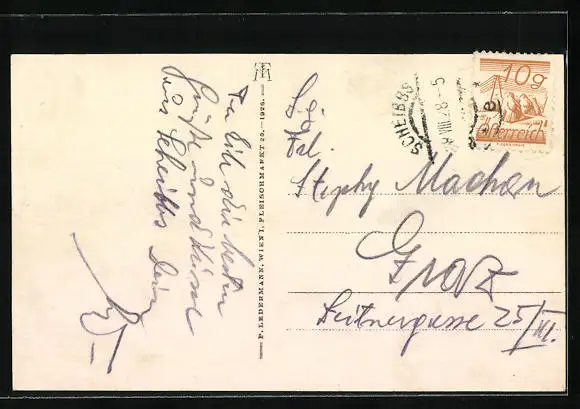 In Eile die besten
Grüße und Küsse
aus Scheibbs Dein
P. LEDERMANN, WIEN I, FLEISCHMARKT 20. — 1926.
SCHEIBBS
VIII 28-5
10g
Österreich
Frl.
Machan
Graz
Leitnergasse 25/III.